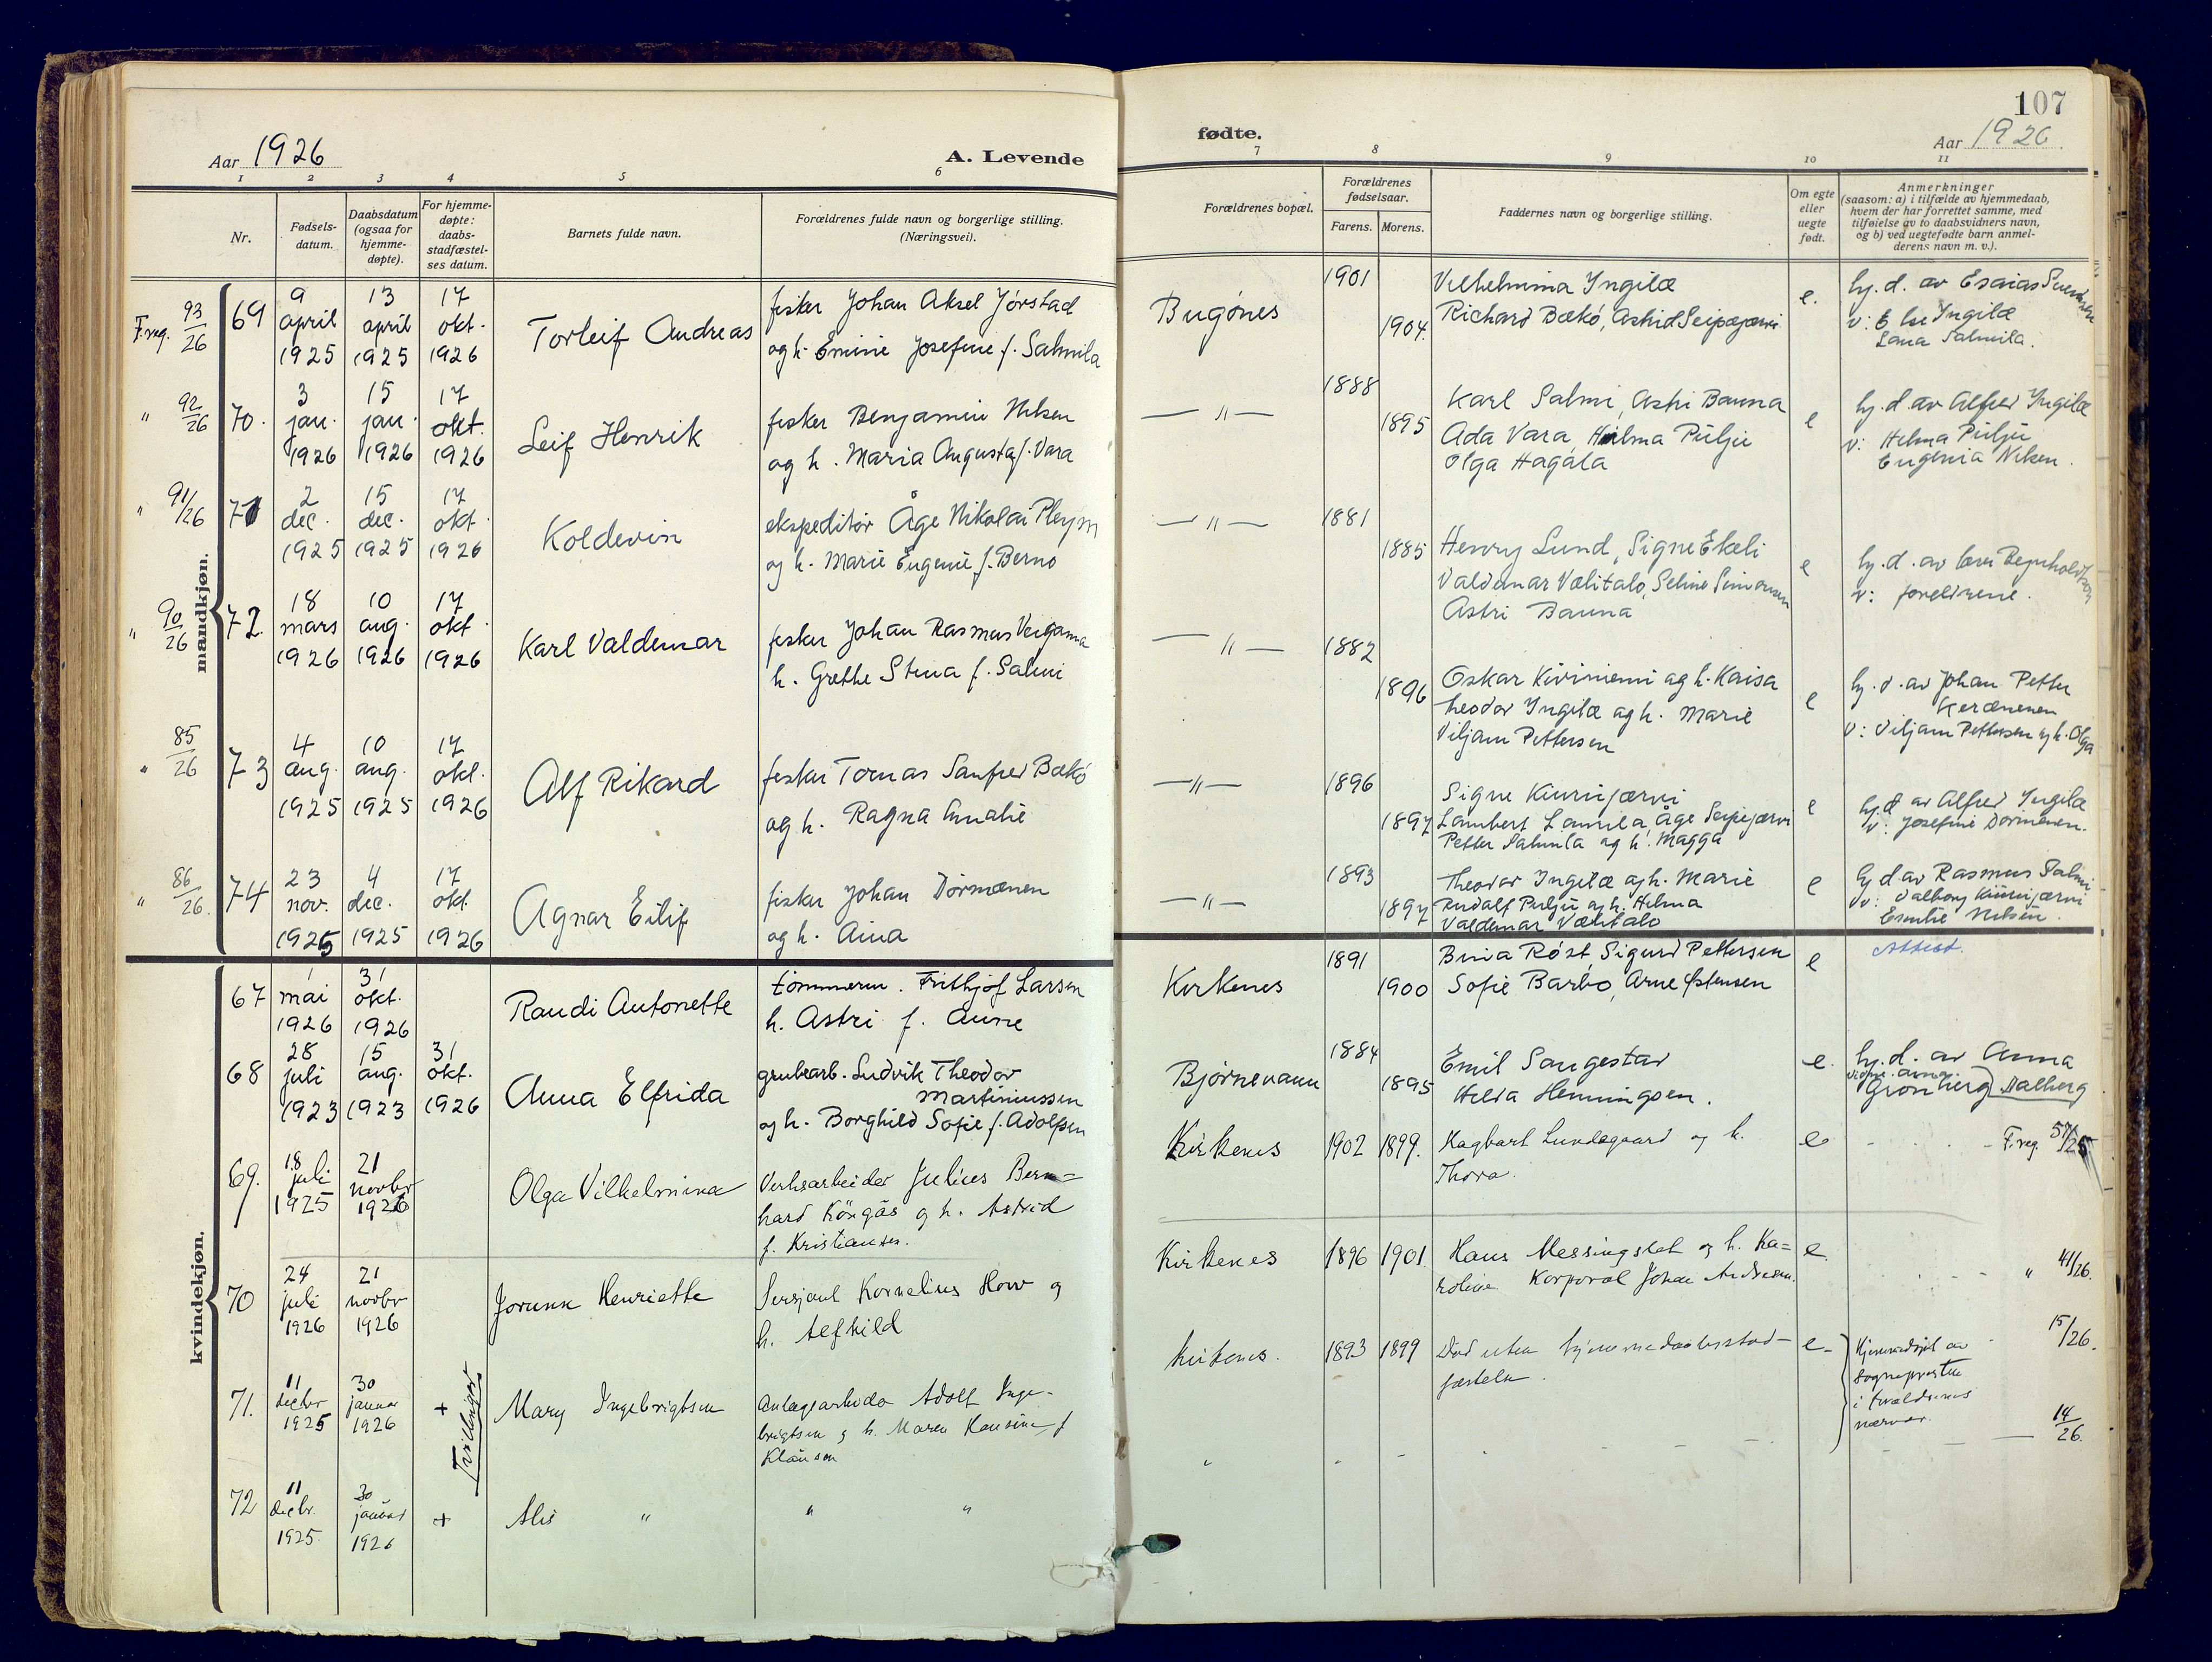 107
Aar 1926
A. Levende
fødte.
Aar 1926.
1 2 3 4 5 6 7 8 9 10 11
Nr.
Fødsels-
datum.
Daabsdatum
(ogsaa for
hjemme-
døpte).
For hjemme-
døpte:
daabs-
stadfæstel-
ses datum.
Barnets fulde navn.
Forældrenes fulde navn og borgerlige stilling.
(Næringsvei).
Forældrenes bopæl.
Forældrenes
fødselsaar.
Farens. Morens.
Faddernes navn og borgerlige stilling.
Om egte
eller
uegte
født.
Anmerkninger
(saasom: a) i tilfælde av hjemmedaab,
hvem der har forrettet samme, med
tilføielse av to daabsvidners navn,
og b) ved uegtefødte barn anmel-
derens navn m. v.).
mandkjøn.
F.reg. 93/26
69
9 april 1925
13 april 1925
17 okt. 1926
Torleif Andreas
fisker Johan Aksel Jørstad
og h. Emine Josefine f. Salmila
Bugønes
1901
1904.
Vilhelmina Ingilæ
Richard Bækø, Astrid Seipæjærvi
e.
hj. d. av Esaias
v: Else Ingilæ
Lana Salmila.
" 92/26
70.
3 jan. 1926
15 jan. 1926
17 okt. 1926
Leif Henrik
fisker Benjamin Nilsen
og h. Maria Augusta f. Vara
— " —
1888
1895
Karl Salmi, Astri Banna
Ada Vara, Hilma Pulju
Olga Hagala
e
hj. d. av Alfred Ingilæ
v: Hilma Pulju
Eugenia Nilsen.
" 91/26
71
2 dec. 1925
15 dec. 1925
17 okt. 1926
Koldevin
ekspeditør Åge Nikolai Pleym
og h. Marie Eugenie f. Berno
— " —
1881
1885
Henry Lund, Signe Ekeli
Valdemar Vælitalo, Seline Simonsen
Astri Banna
e
hj. d. av
v: foreldrene.
" 90/26
72.
18 mars 1926
10 aug. 1926
17 okt. 1926
Karl Valdemar
fisker Johan Rasmus Veigama
h. Grethe Stina f. Salmi
— " —
1882
1896
Oskar Kiviniemi og h. Kaisa
Theodor Ingilæ og h. Marie
Viljam Pettersen
e
hj. d. av Johan Petter
Kerænenen
v: Viljam Pettersen og h. Olga
" 85/26
73
4 aug. 1925
10 aug. 1925
17 okt. 1926
Alf Rikard
fisker Tomas Sanfred Bækø
og h. Ragna Amalie
— " —
1896
1897
Signe Kiurujærvi
Lambert Lamila, Åge Seipejærvi
Petter Salmila og h. Magga
e
hj. d av Alfred Ingilæ
v: Josefine Dørmenen.
" 86/26.
74
23 nov. 1925
4 dec. 1925
17 okt. 1926
Agnar Eilif
fisker Johan Dørmænen
og h. Aina
— " —
1893
1897
Theodor Ingilæ og h. Marie
Rudolf Pulju og h. Hilma
Valdemar Vælitalo
e
hj d av Rasmus Salmi
v: Valborg Kiurujærvi
Emilie Nilsen.
kvindekjøn.
67
1 mai 1926
31 okt. 1926
Randi Antonette
tømmerm. Frithjof Larsen
h. Astri f. Aune
Kirkenes
1891
1900
Bina Røst, Sigurd Pettersen
Sofie Barbo, Arne Østensen
e
Attest.
68
28 juli 1923
15 aug. 1923
31 okt. 1926
Anna Elfrida
grubearb. Ludvik Theodor
Martiniussen
og h. Borghild Sofie f. Adolfsen
Bjørnevann
1884
1895
Emil Sangestad
Hilda Henningsen.
e.
hj. d. av Anna
Grønberg Dalberg
69.
18 juli 1925
21 novbr 1926
Olga Vilhelmina
Verksarbeider Julius Bern-
hard Köngäs og h. Astrid
f. Kristiansen.
Kirkenes
1902
1899.
Hagbart Lundegaard og h.
Thora.
e
F.reg. 57/25
70
24 juli 1926
21 novbr 1926
Jorunn Henriette
Sersjant Kornelius How og
h. Alfhild
Kirkenes
1896
1901
Hans Messingslet og h. Ka-
roline Korporal Johan Andresen.
e
" 41/26.
71.
11 decbr 1925
30 januar 1926
+
Tvillinger
Mary Ingebrigtsen
Anlægsarbeider Adolf Inge-
brigtsen og h. Maren Hansine f
Klausen
Kirkenes.
1893
1899
Død uten hjemmedaabsstad-
festelse.
e.
Hjemmedøpt av
sognepresten
i foreldrenes
nærvær.
15/26.
72
11 decbr. 1925.
30 januar 1926
+
Alis "
" "
14/26.